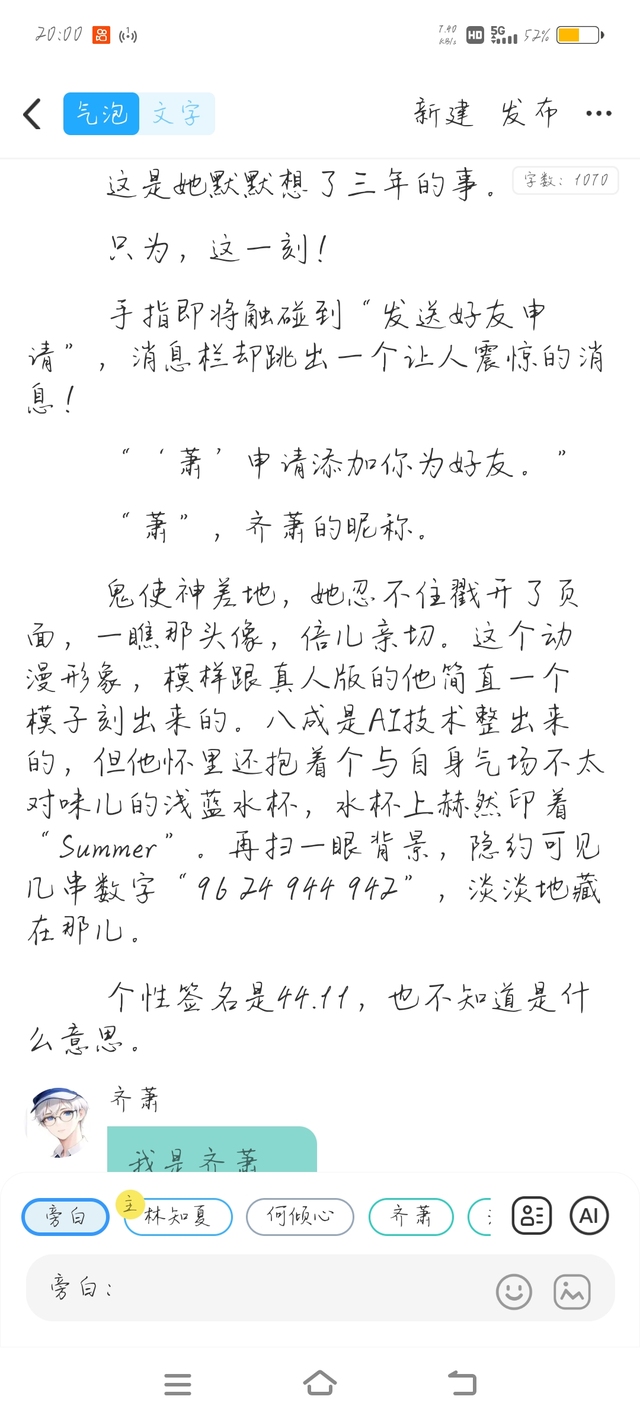 20:00
7.40 KB/s HD 5G 52%
气泡 文字 新建 发布
字数：1070
这是她默默想了三年的事。
只为，这一刻！
手指即将触碰到“发送好友申
请”，消息栏却跳出一个让人震惊的消
息！
“‘萧’申请添加你为好友。”
“萧”，齐萧的昵称。
鬼使神差地，她忍不住戳开了页
面，一瞧那头像，倍儿亲切。这个动
漫形象，模样跟真人版的他简直一个
模子刻出来的。八成是AI技术整出来
的，但他怀里还抱着个与自身气场不太
对味儿的浅蓝水杯，水杯上赫然印着
“Summer”。再扫一眼背景，隐约可见
几串数字“96 24 944 942”，淡淡地藏
在那儿。
个性签名是44.11，也不知道是什
么意思。
齐萧
我是齐萧
旁白 主 林知夏 何倾心 齐萧 AI
旁白：